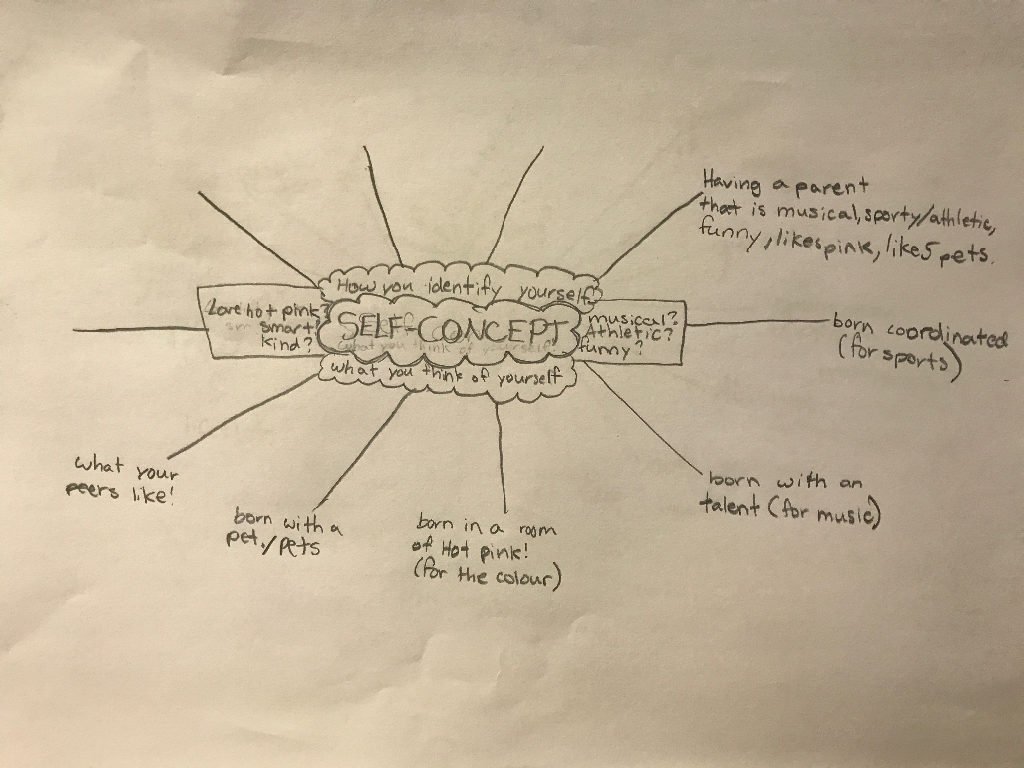 Having a parent
that is musical, sporty/athletic,
funny, likes pink, likes pets.
How you identify yourself
Love hot pink?
smart?
kind?
SELF-CONCEPT
musical?
Athletic?
funny?
what you think of yourself
born coordinated
(for sports)
what your
peers like!
born with a
pet./pets
born in a room
of Hot pink!
(for the colour)
born with an
talent (for music)